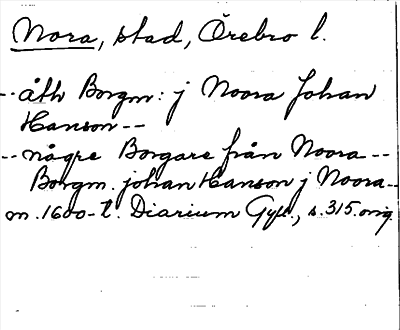 Nora, stad, Örebro l.
--åth Borgm: j Noora Johan
Hanson--
--någre Borgare från Noora--
Borgm. johan Hanson j Noora--
m. 1600-t. Diarium Gyll., s. 315. orig.